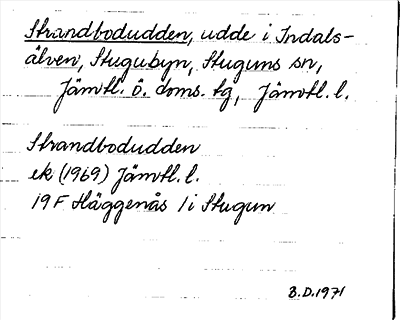 Strandbodudden, udde i Indals-
älven, Stugubyn, Stuguns sn,
Jämtl. ö. doms. tg, Jämtl. l.
Strandbodudden
ek (1969) Jämtl. l.
19 F Häggenås 1 i Stugun
B.D.1971